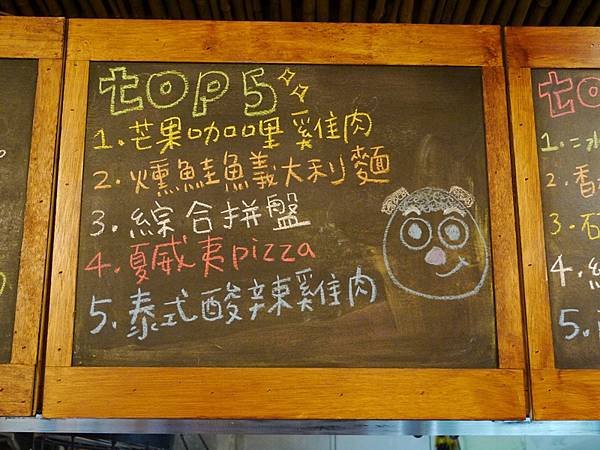 TOP5
1.芒果咖哩雞肉
2.燻鮭魚義大利麵
3.綜合拼盤
4.夏威夷pizza
5.泰式酸辣雞肉
to
1.
2.香
3.石
4.
5.